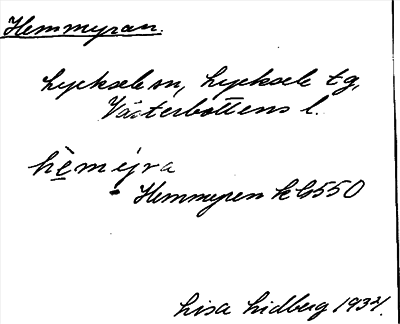 Hemmyran.
Lycksele sn, Lycksele tg,
Västerbottens l.
hèmejra
Hemmyren k b 550
Lisa Lidberg 1931.